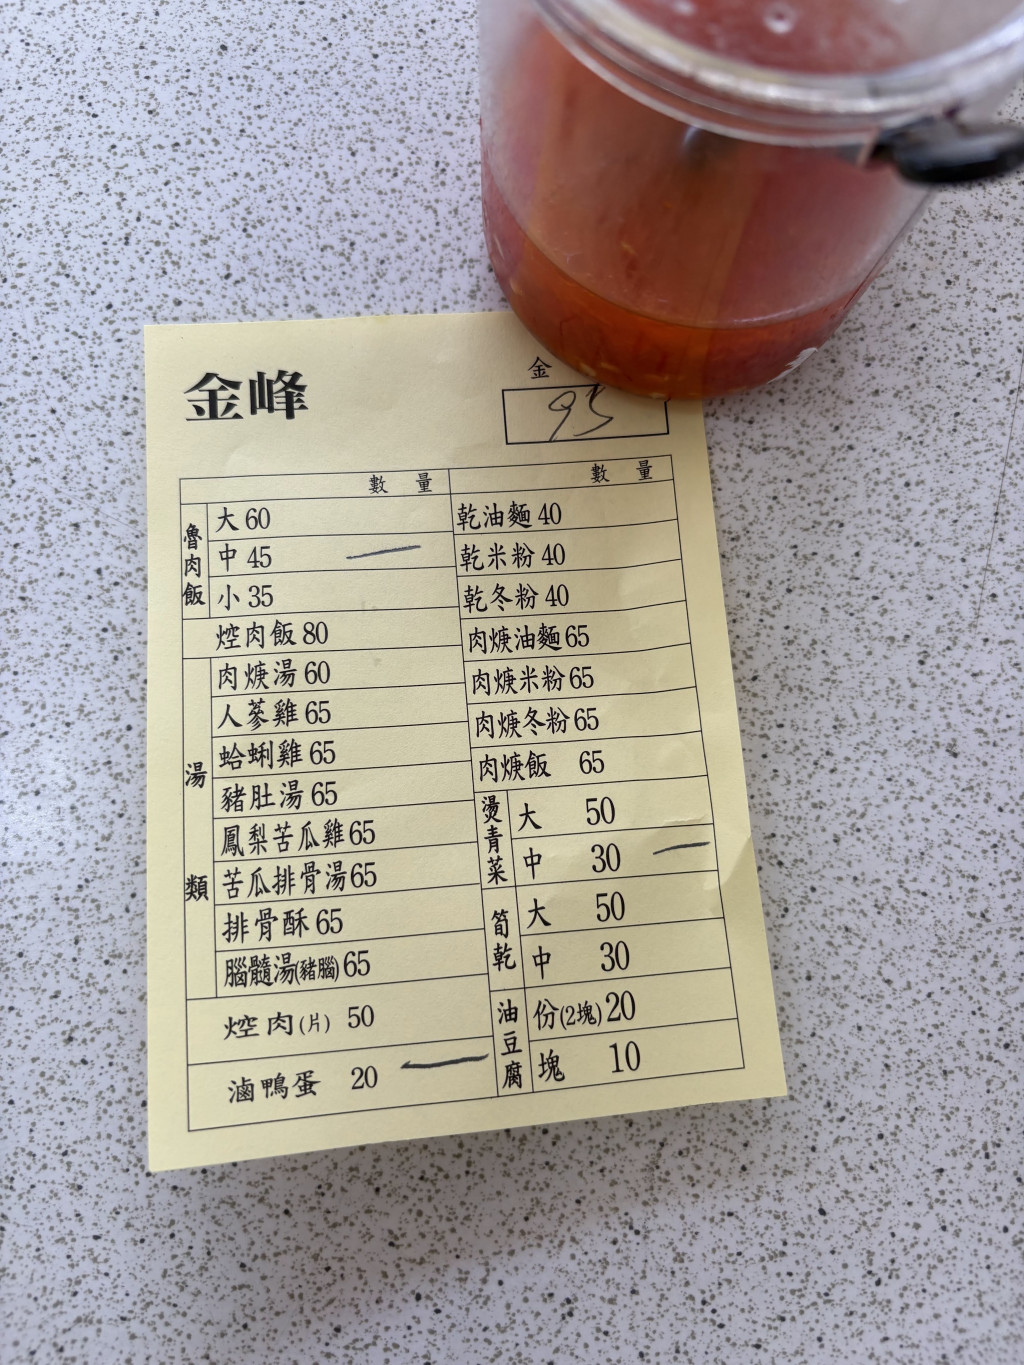 金峰
金
95
數 量
魯肉飯
大 60
中 45
小 35
焢肉飯 80
湯類
肉焿湯 60
人蔘雞 65
蛤蜊雞 65
豬肚湯 65
鳳梨苦瓜雞 65
苦瓜排骨湯 65
排骨酥 65
腦髓湯(豬腦) 65
焢肉(片) 50
滷鴨蛋 20
數 量
乾油麵 40
乾米粉 40
乾冬粉 40
肉焿油麵 65
肉焿米粉 65
肉焿冬粉 65
肉焿飯 65
燙青菜
大 50
中 30
筍乾
大 50
中 30
油豆腐
份(2塊) 20
塊 10